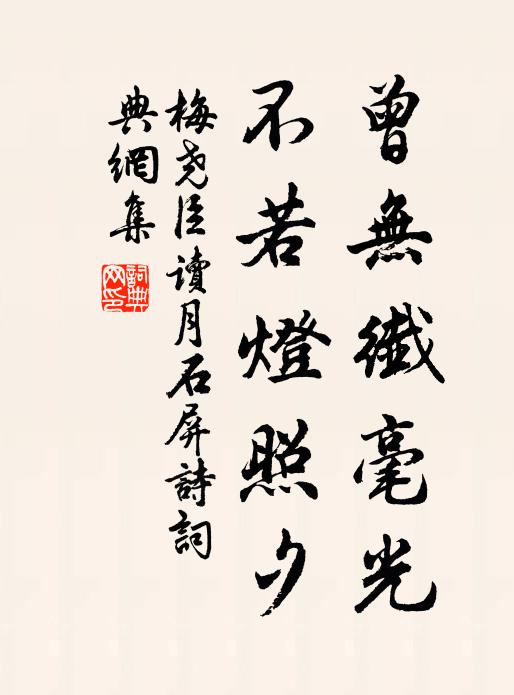 曾無纖毫光
不若燈照夕
梅堯臣讀月石屏詩詞
典網集
詞典
网印